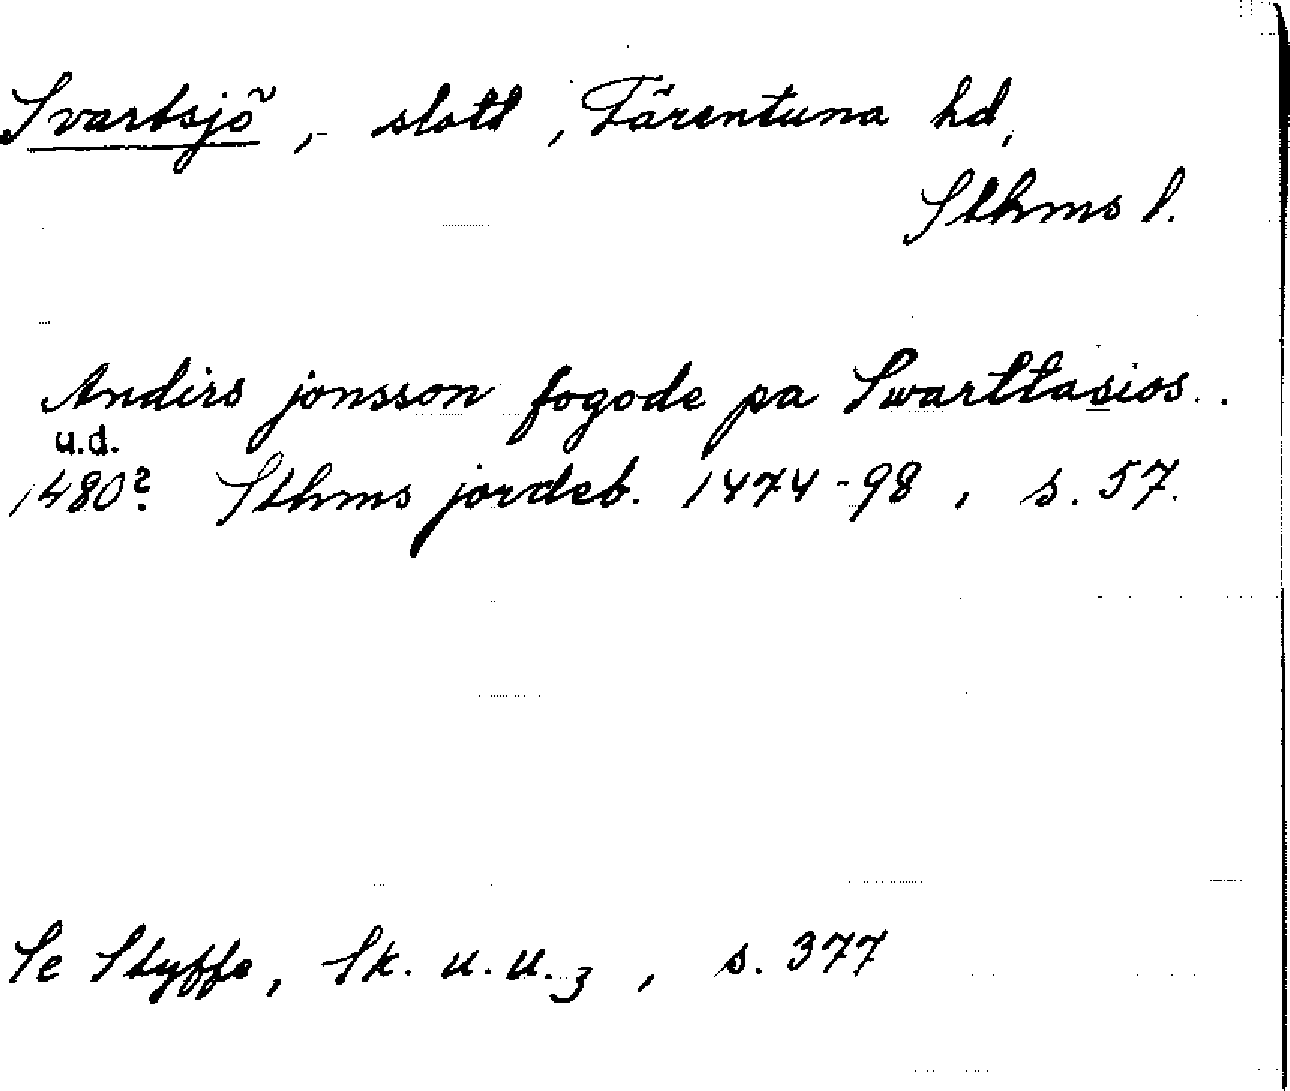 Svartsjö, - slott, Färentuna hd,
Sthms l.
Andirs jonsson fogode pa Swarttasios..
u.d.
1480? Sthms jordeb. 1474-98, s. 57.
Se Styffe, Sk. u. u. 3, s. 377